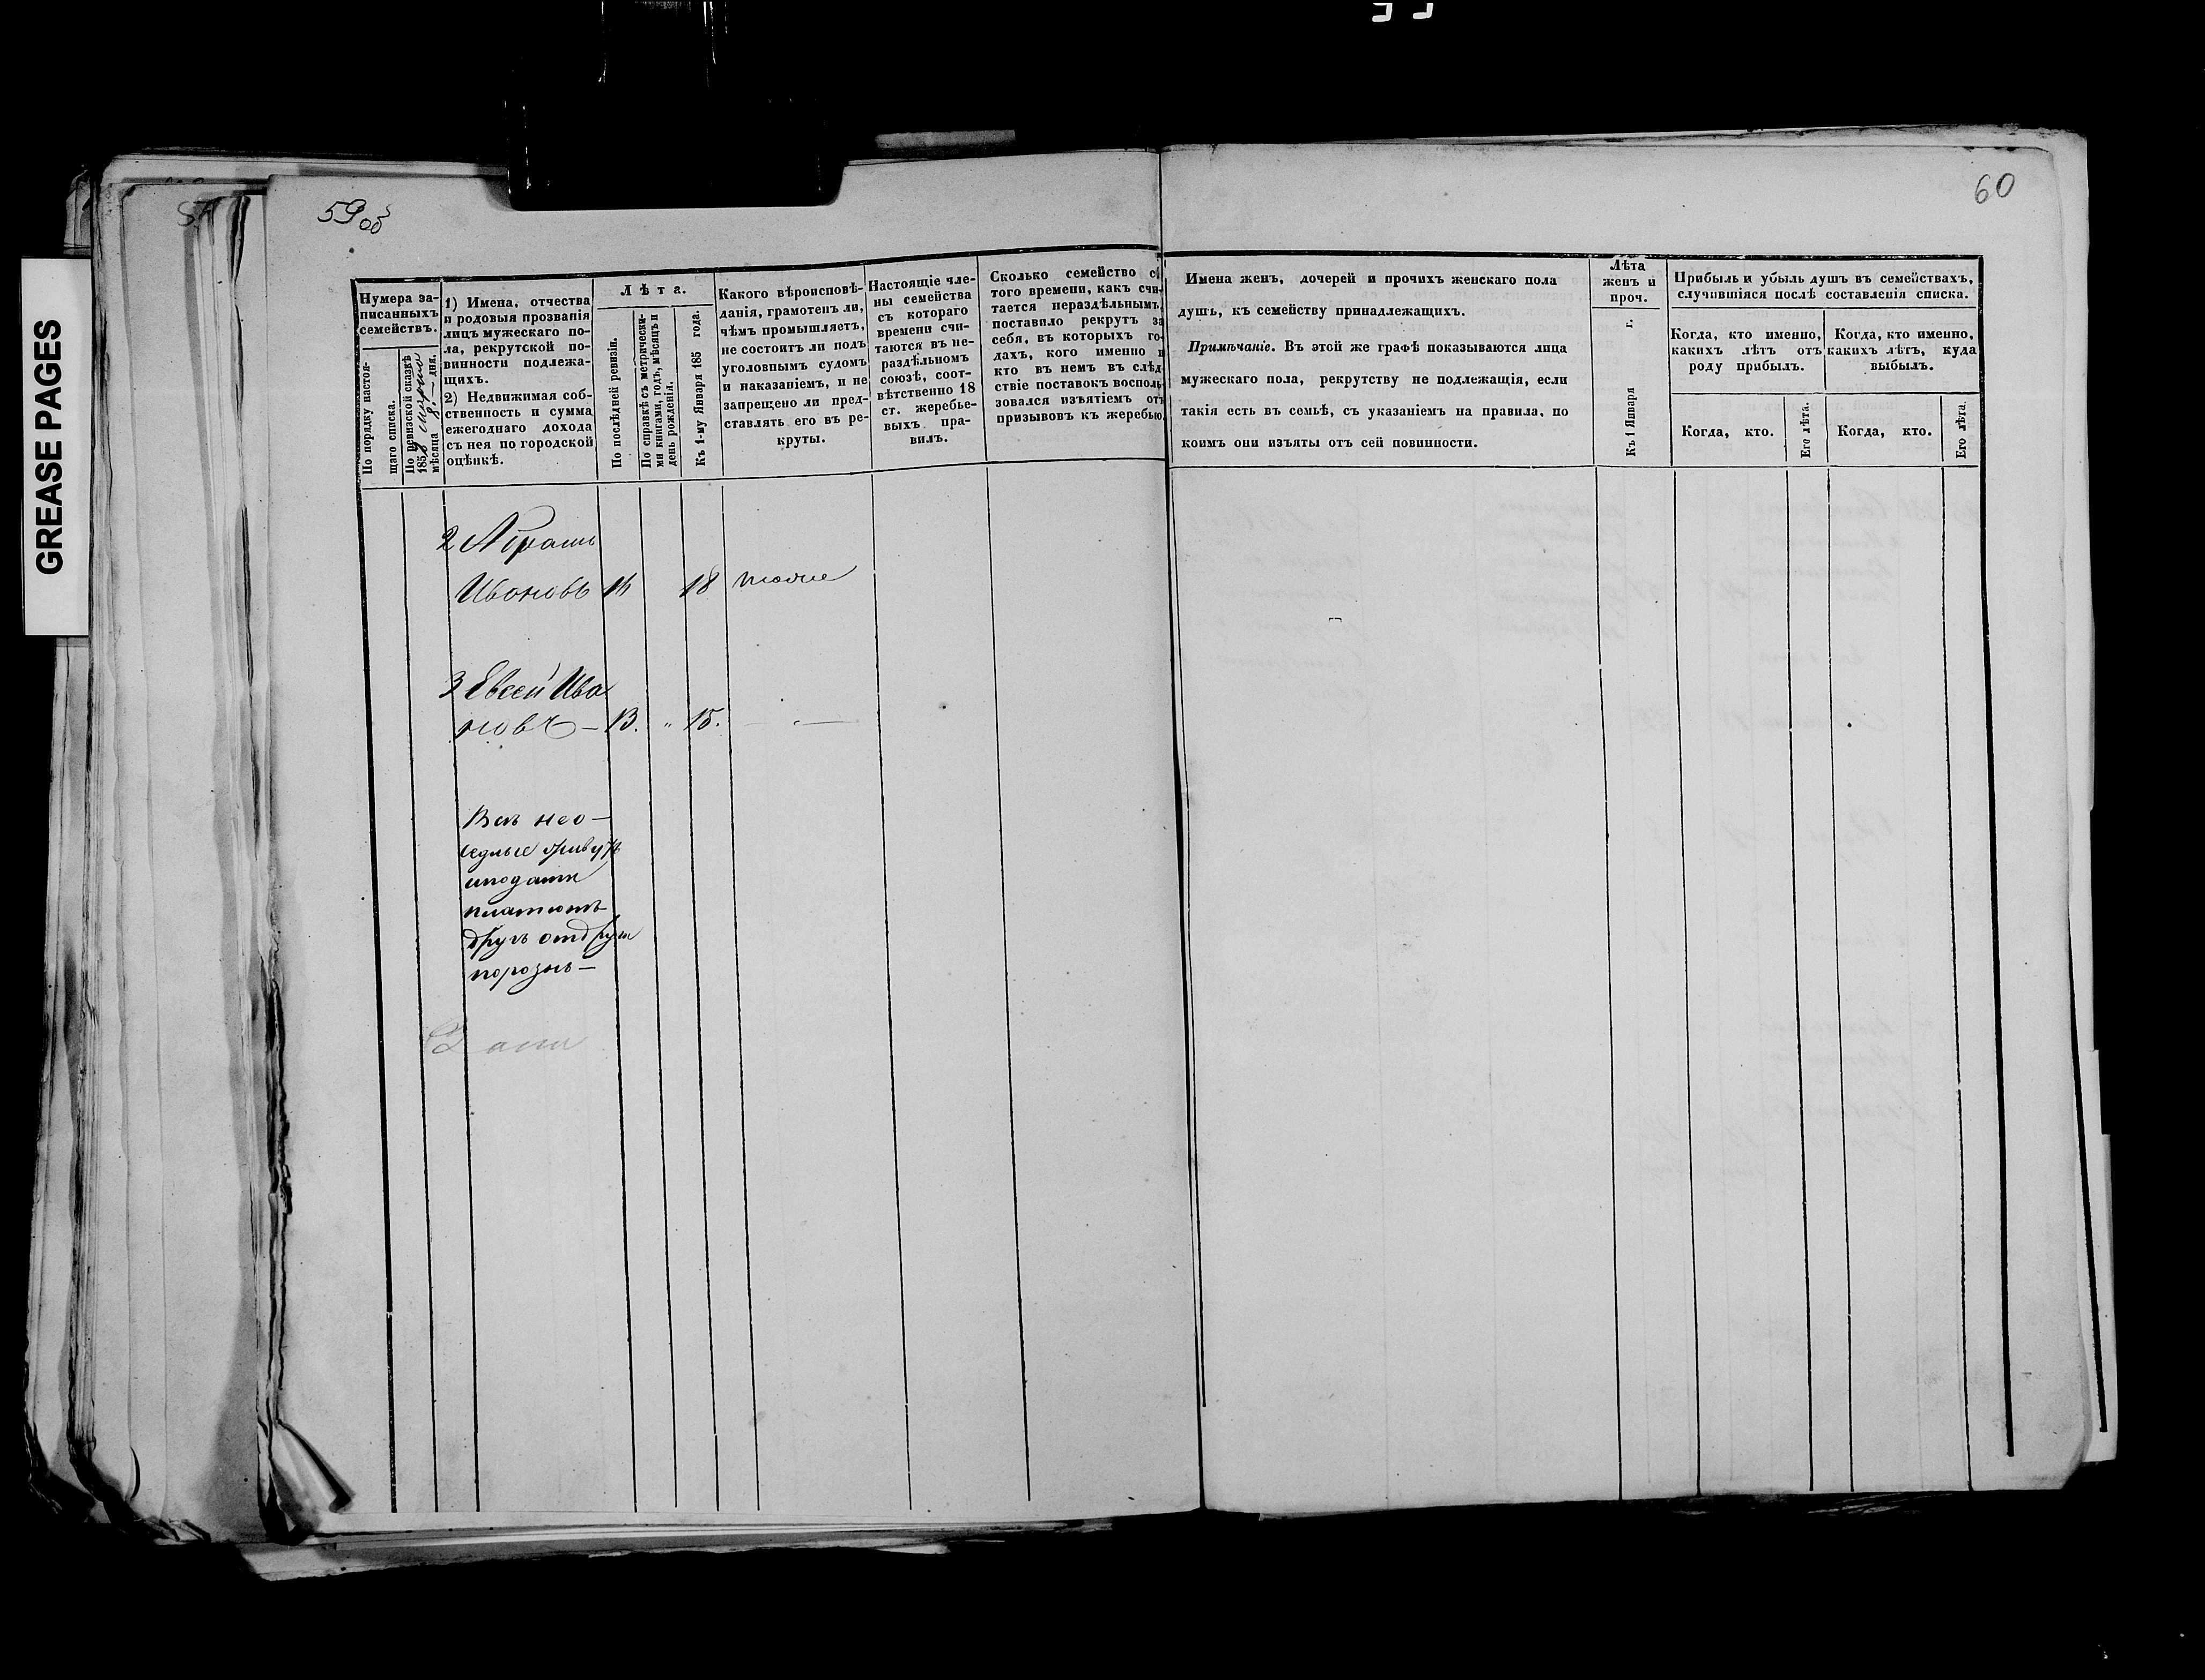 59об
60
GREASE PAGES
Нумера за-
писанныхъ
семействъ.
По порядку настоя-
щаго списка.
По ревизской сказкѣ
1858 марта
мѣсяца 8. дня.
1) Имена, отчества
и родовыя прозванія
лицъ мужескаго по-
ла, рекрутской по-
винности подлежа-
щихъ.
2) Недвижимая соб-
ственность и сумма
ежегоднаго дохода
съ нея по городской
оцѣнкѣ.
Лѣта.
По послѣдней ревизіи.
По справкѣ съ метрически-
ми книгами, годъ, мѣсяцъ и
день рожденія.
Къ 1-му Января 185 года.
Какого вѣроисповѣ-
данія, грамотенъ ли,
чѣмъ промышляетъ,
не состоитъ ли подъ
уголовнымъ судомъ
и наказаніемъ, и не
запрещено ли пред-
ставлять его въ ре-
круты.
Настоящіе чле-
ны семейства
съ котораго
времени счи-
таются въ не-
раздѣльномъ
союзѣ, соот-
вѣтственно 18
ст. жеребье-
выхъ пра-
вилъ.
Сколько семейство съ
того времени, какъ счи-
тается нераздѣльнымъ,
поставило рекрутъ за
себя, въ которыхъ го-
дахъ, кого именно и
кто въ немъ въ слѣд-
ствіе поставокъ восполь-
зовался изъятіемъ отъ
призывовъ къ жеребью.
Имена женъ, дочерей и прочихъ женскаго пола
душъ, къ семейству принадлежащихъ.
Примѣчаніе. Въ этой же графѣ показываются лица
мужескаго пола, рекрутству не подлежащія, если
такія есть въ семьѣ, съ указаніемъ на правила, по
коимъ они изъяты отъ сей повинности.
Лѣта
женъ и
проч.
Къ 1 Января г.
Прибыль и убыль душъ въ семействахъ,
случившіяся послѣ составленія списка.
Когда, кто именно,
какихъ лѣтъ отъ
роду прибылъ.
Когда, кто именно,
какихъ лѣтъ, куда
выбылъ.
Когда, кто.
Его лѣта.
Когда, кто.
Его лѣта.
2 Абрамъ
Ивановъ 16 18 тоже
3 Евсей Ива
новъ — 13. " 15. — " —
Всѣ нео-
седлые живутъ
иподати
платютъ
другъ отдруга
порознь —